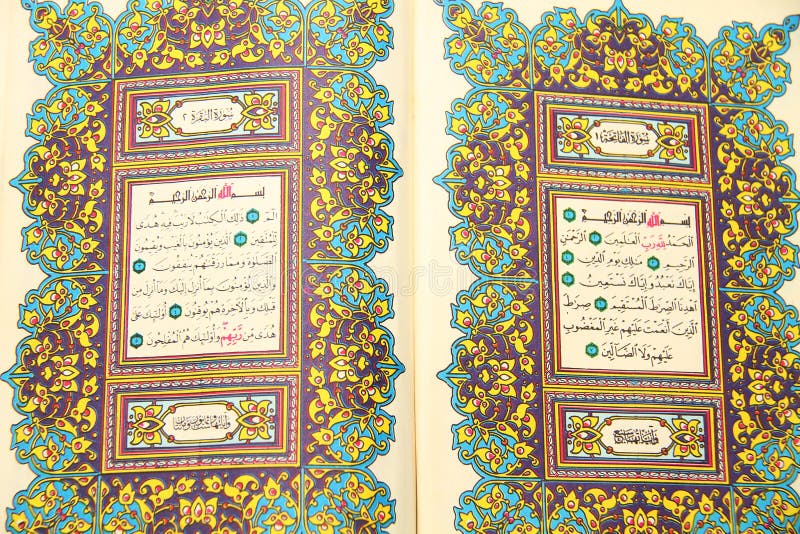 سورة الفاتحة ١
بسم الله الرحمن الرحيم ١
الحمد لله رب العلمين ٢ الرحمن
الرحيم ٣ ملك يوم الدين ٤
إياك نعبد وإياك نستعين ٥
اهدنا الصرط المستقيم ٦ صرط
الذين أنعمت عليهم غير المغضوب
عليهم ولا الضالين ٧
وآياتها سبع
سورة البقرة ٢
بسم الله الرحمن الرحيم
الم ١ ذلك الكتب لا ريب فيه هدى
للمتقين ٢ الذين يؤمنون بالغيب ويقيمون
الصلوة ومما رزقنهم ينفقون ٣
والذين يؤمنون بما أنزل إليك وما أنزل من
قبلك وبالآخرة هم يوقنون ٤ أولئك على
هدى من ربهم وأولئك هم المفلحون ٥